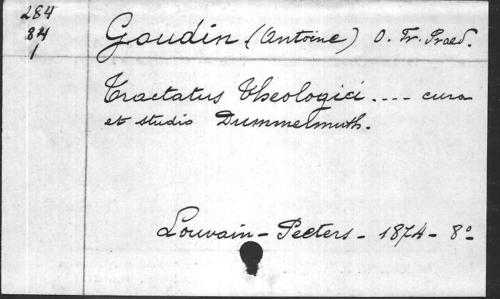 284
84
1
Goudin (Antoine) O. Fr. Praed.
Tractatus Theologici .... cura
et studio Dummermuth.
Louvain - Peeters - 1874 - 8º